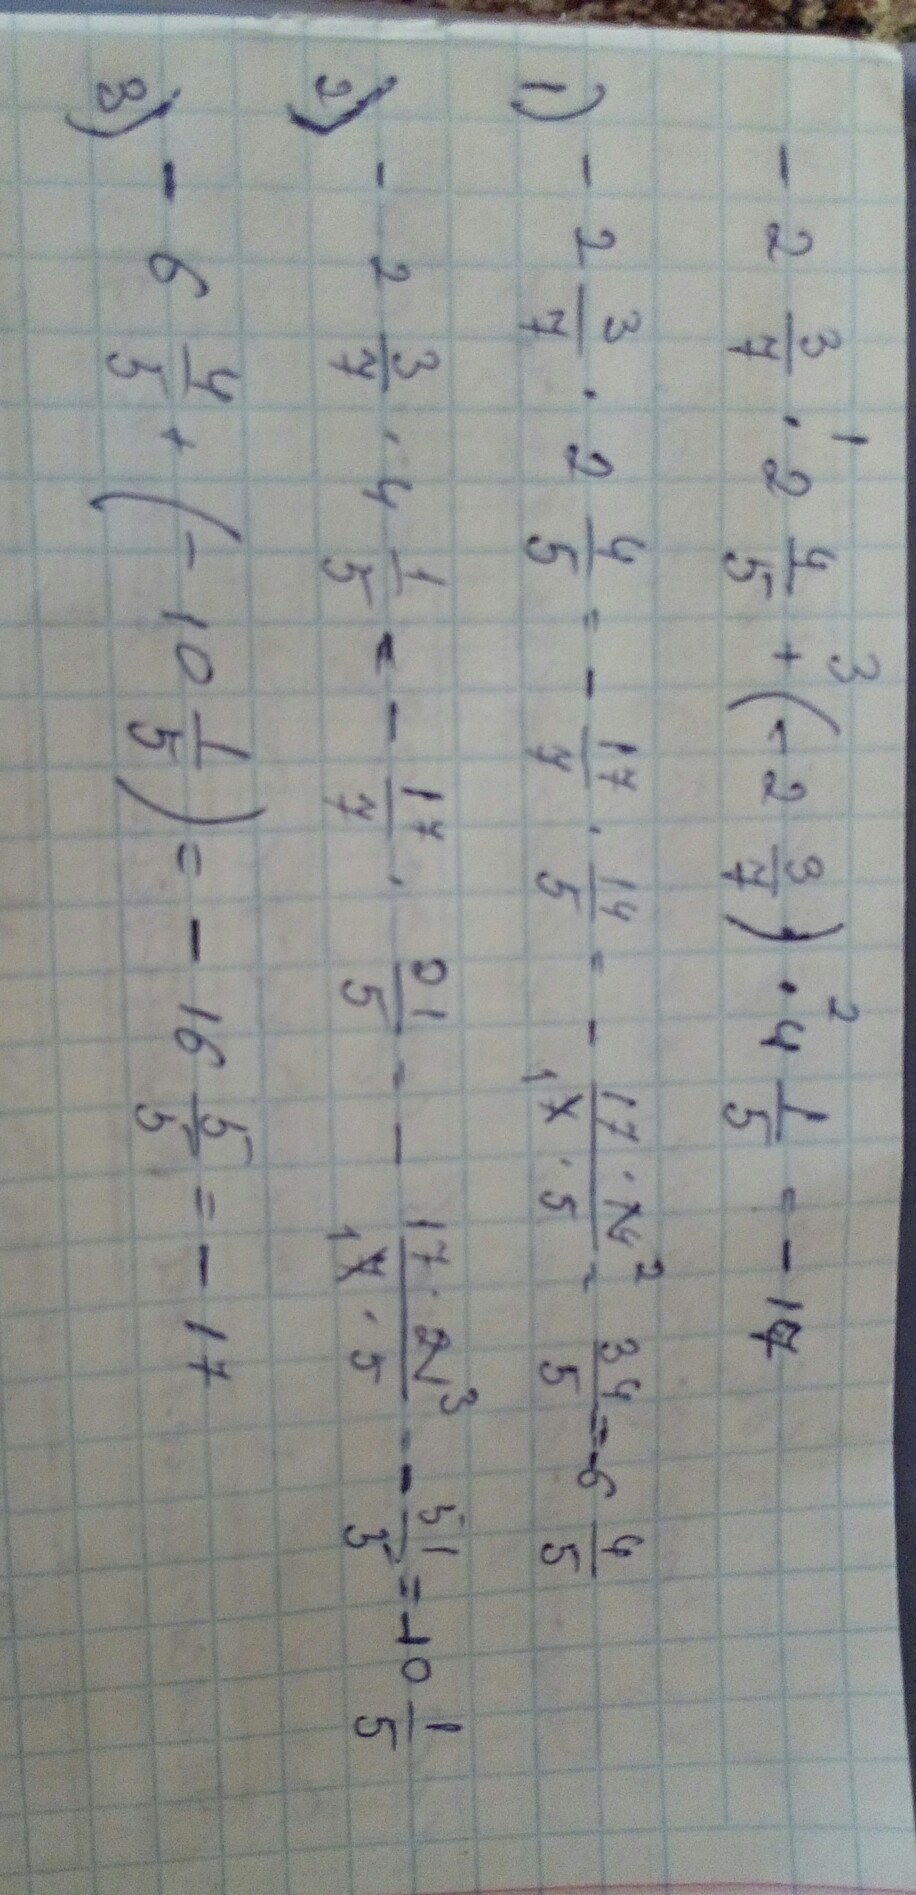 - 2 3/7 · 2 4/5 + (- 2 3/7) · 4 1/5 = - 17
1 3 2
1) - 2 3/7 · 2 4/5 = - 17/7 · 14/5 = - 17 · 14 2 / 1 7 · 5 - 34/5 = -6 4/5
2) - 2 3/7 · 4 1/5 = - 17/7 · 21/5 = - 17 · 21 3 / 1 7 · 5 = - 51/5 = -10 1/5
3) - 6 4/5 + (- 10 1/5) = - 16 5/5 = - 17